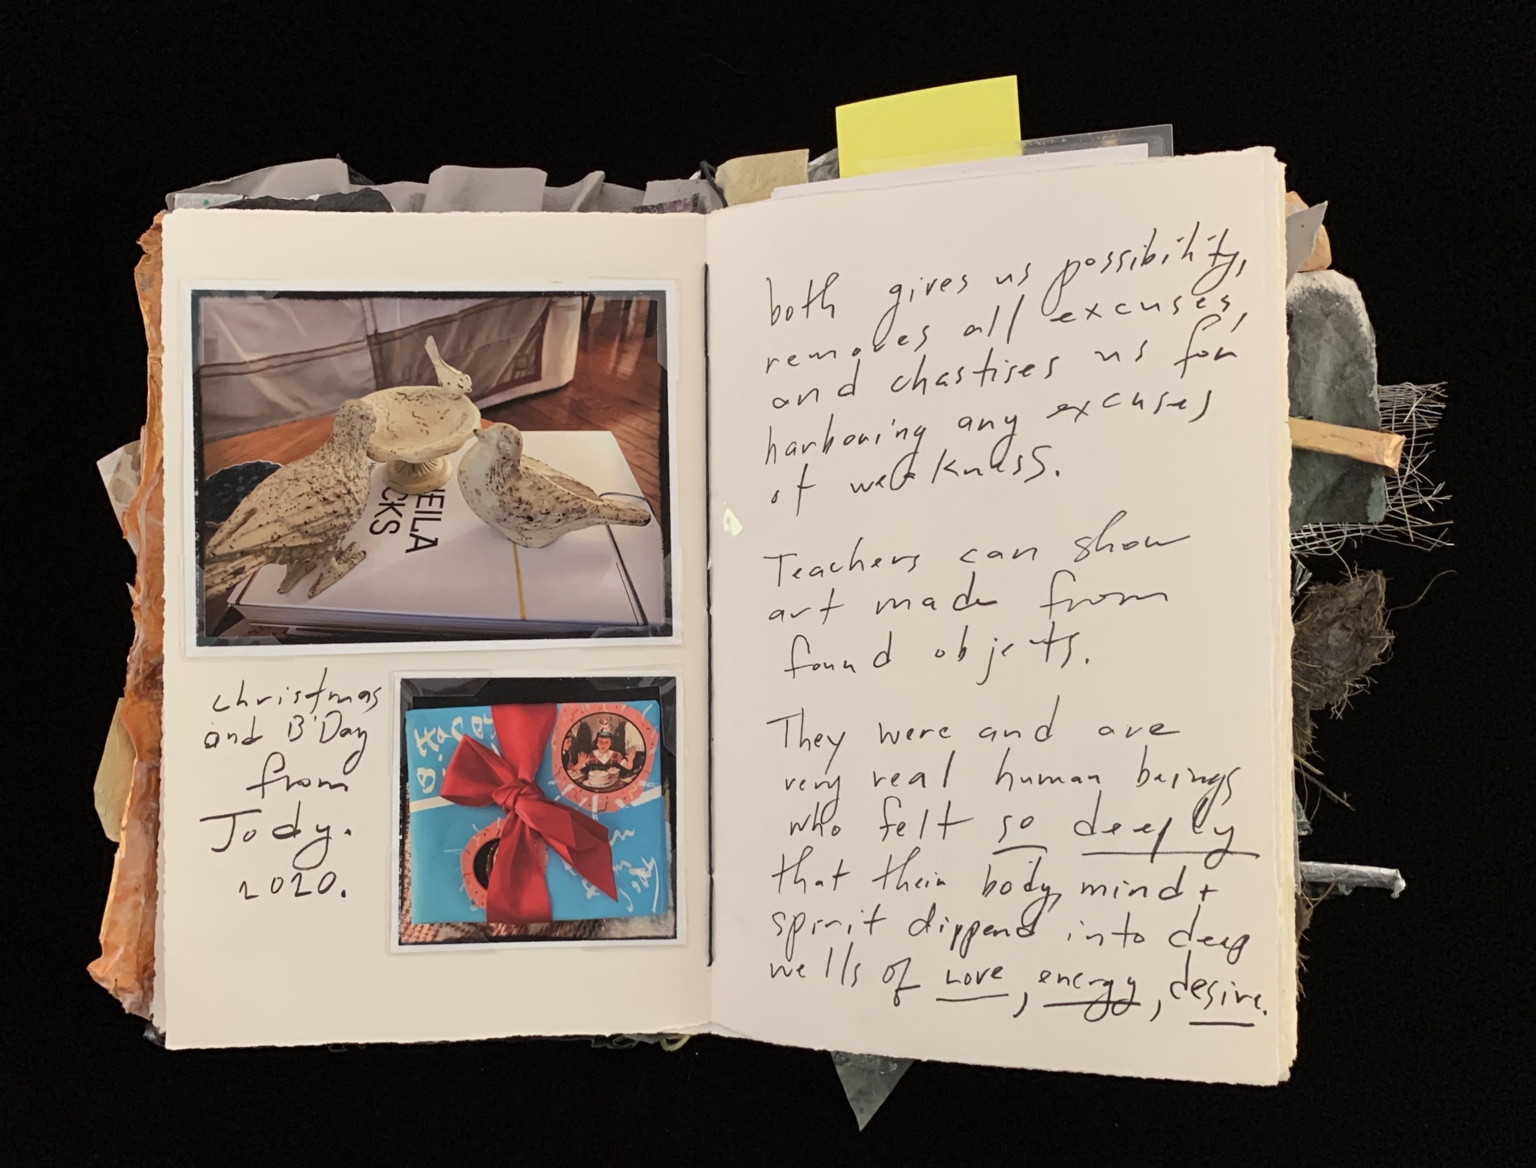 EILA
CKS
christmas
and B'Day
from
Jody.
2020.
Happy
both gives us possibility,
removes all excuses,
and chastises us for
harboring any excuses
of weakness.
Teachers can show
art made from
found objects.
They were and are
very real human beings
who felt so deeply
that their body, mind +
spirit dippend into deep
wells of Love, energy, desire.